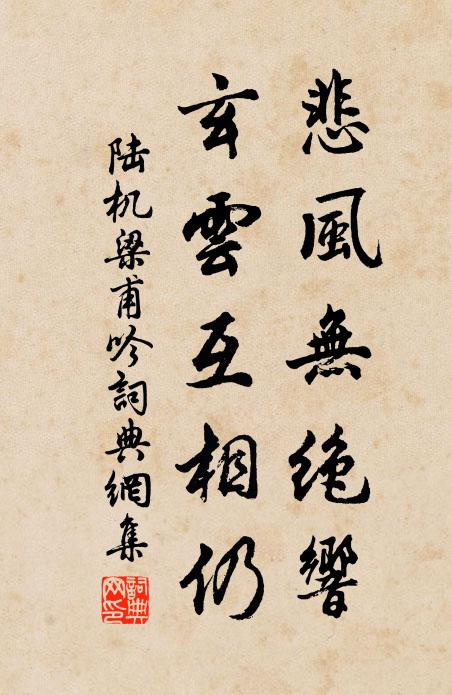 悲風無絶響
玄雲互相仍
陆机梁甫吟詞典網集
詞典網印